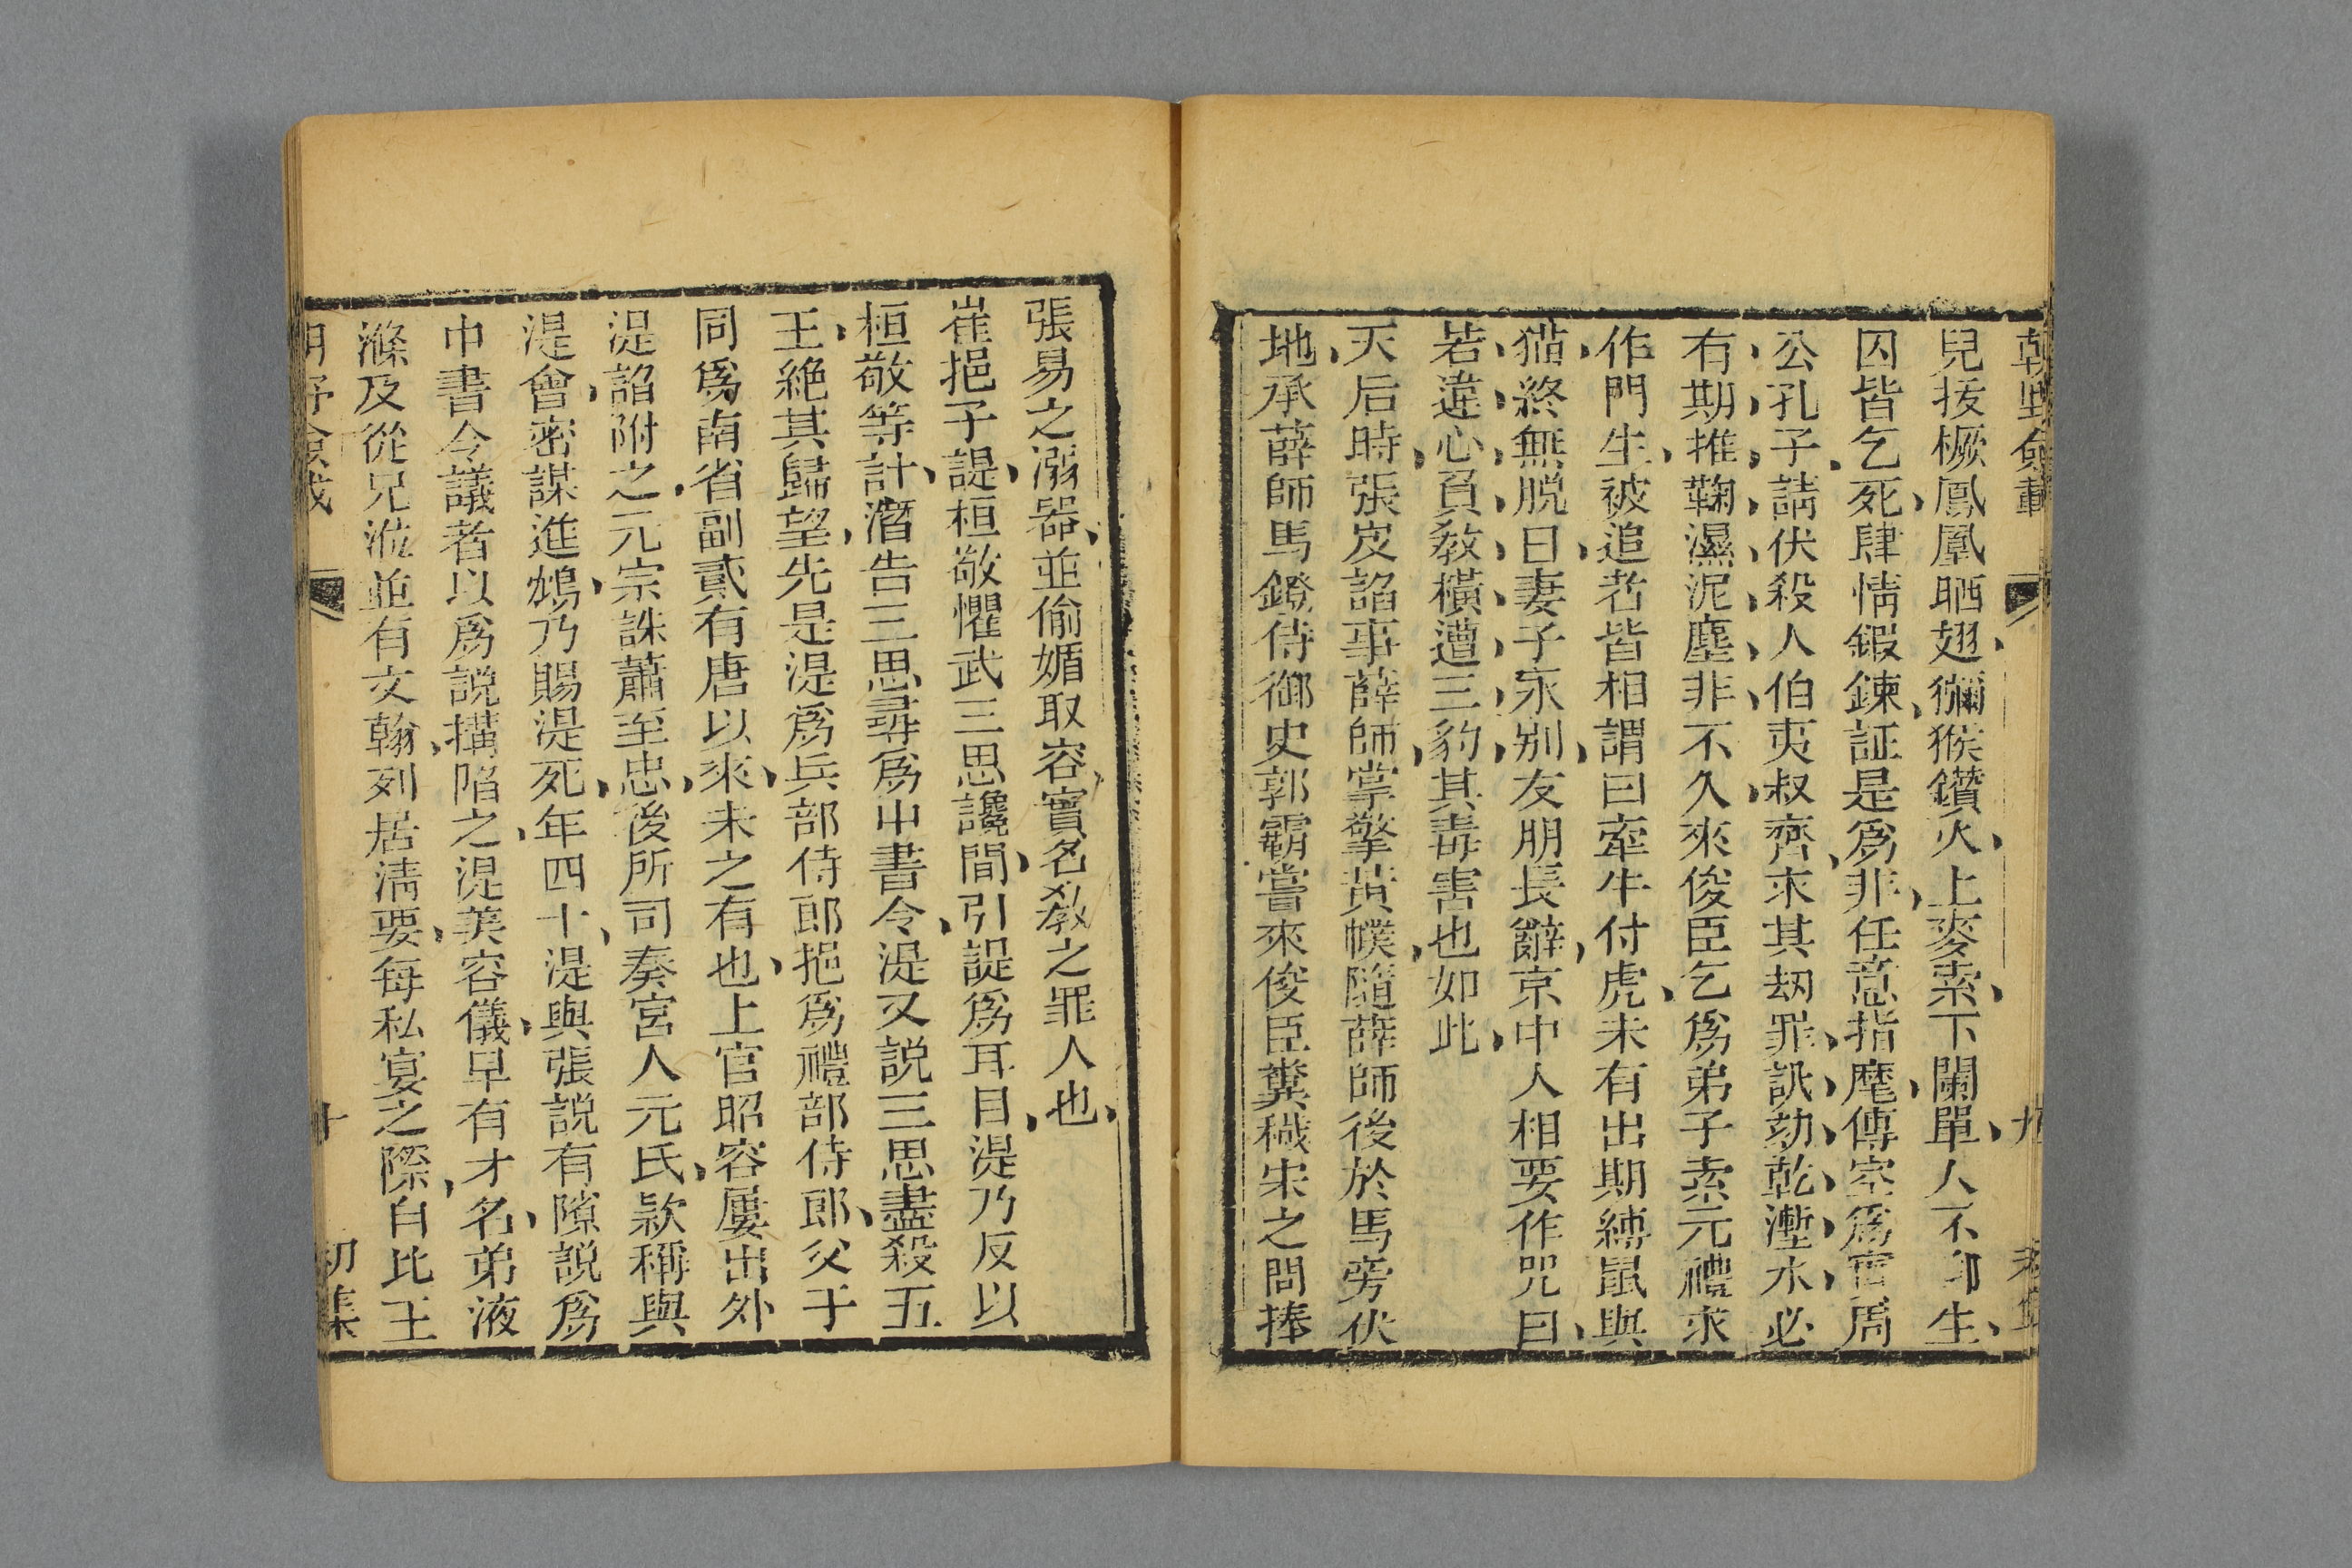 朝野僉載
九
兒拔橛鳳凰晒翅、獼猴鑽火、上麥索、下闌單、人不聊生、
囚皆乞死、肆情鍜鍊、証是爲非、任意指麾、傅空爲實、周
公孔子、請伏殺人、伯夷叔齊、求其刼罪、訊劾乾塹水必
有期、推鞠濕泥塵非不久、來俊臣乞爲弟子、索元禮求
作門生、被追者皆相謂曰、牽牛付虎、未有出期、縛鼠與
猫、終無脱日、妻子永别、友朋長辭、京中人相要作咒曰、
若違心負教、橫遭三豹、其毒害也如此、
天后時、張岌諂事薛師、掌擎黃幞、隨薛師後、於馬旁伏
地、承薛師馬鐙、侍御史郭霸嘗來俊臣糞穢、宋之問捧
張易之溺器、並偷媚取容、實名教之罪人也、
崔挹子諟、桓敬懼武三思讒間、引諟爲耳目、湜乃反以
桓敬等計、潛告三思、尋爲中書令、湜又説三思盡殺五
王、絶其歸望、先是湜爲兵部侍郎、挹爲禮部侍郎、父子
同爲南省副貳、有唐以來、未之有也、上官昭容屢出外、
湜諂附之、元宗誅蕭至忠、後所司奏宮人元氏、款稱與
湜會密謀進鴆、乃賜湜死、年四十、湜與張説有隙、説爲
中書令、議者以爲説搆陷之、湜美容儀、早有才名、弟液
滌及從兄涖、並有文翰、列居清要、每私宴之際、自比王
十
初集